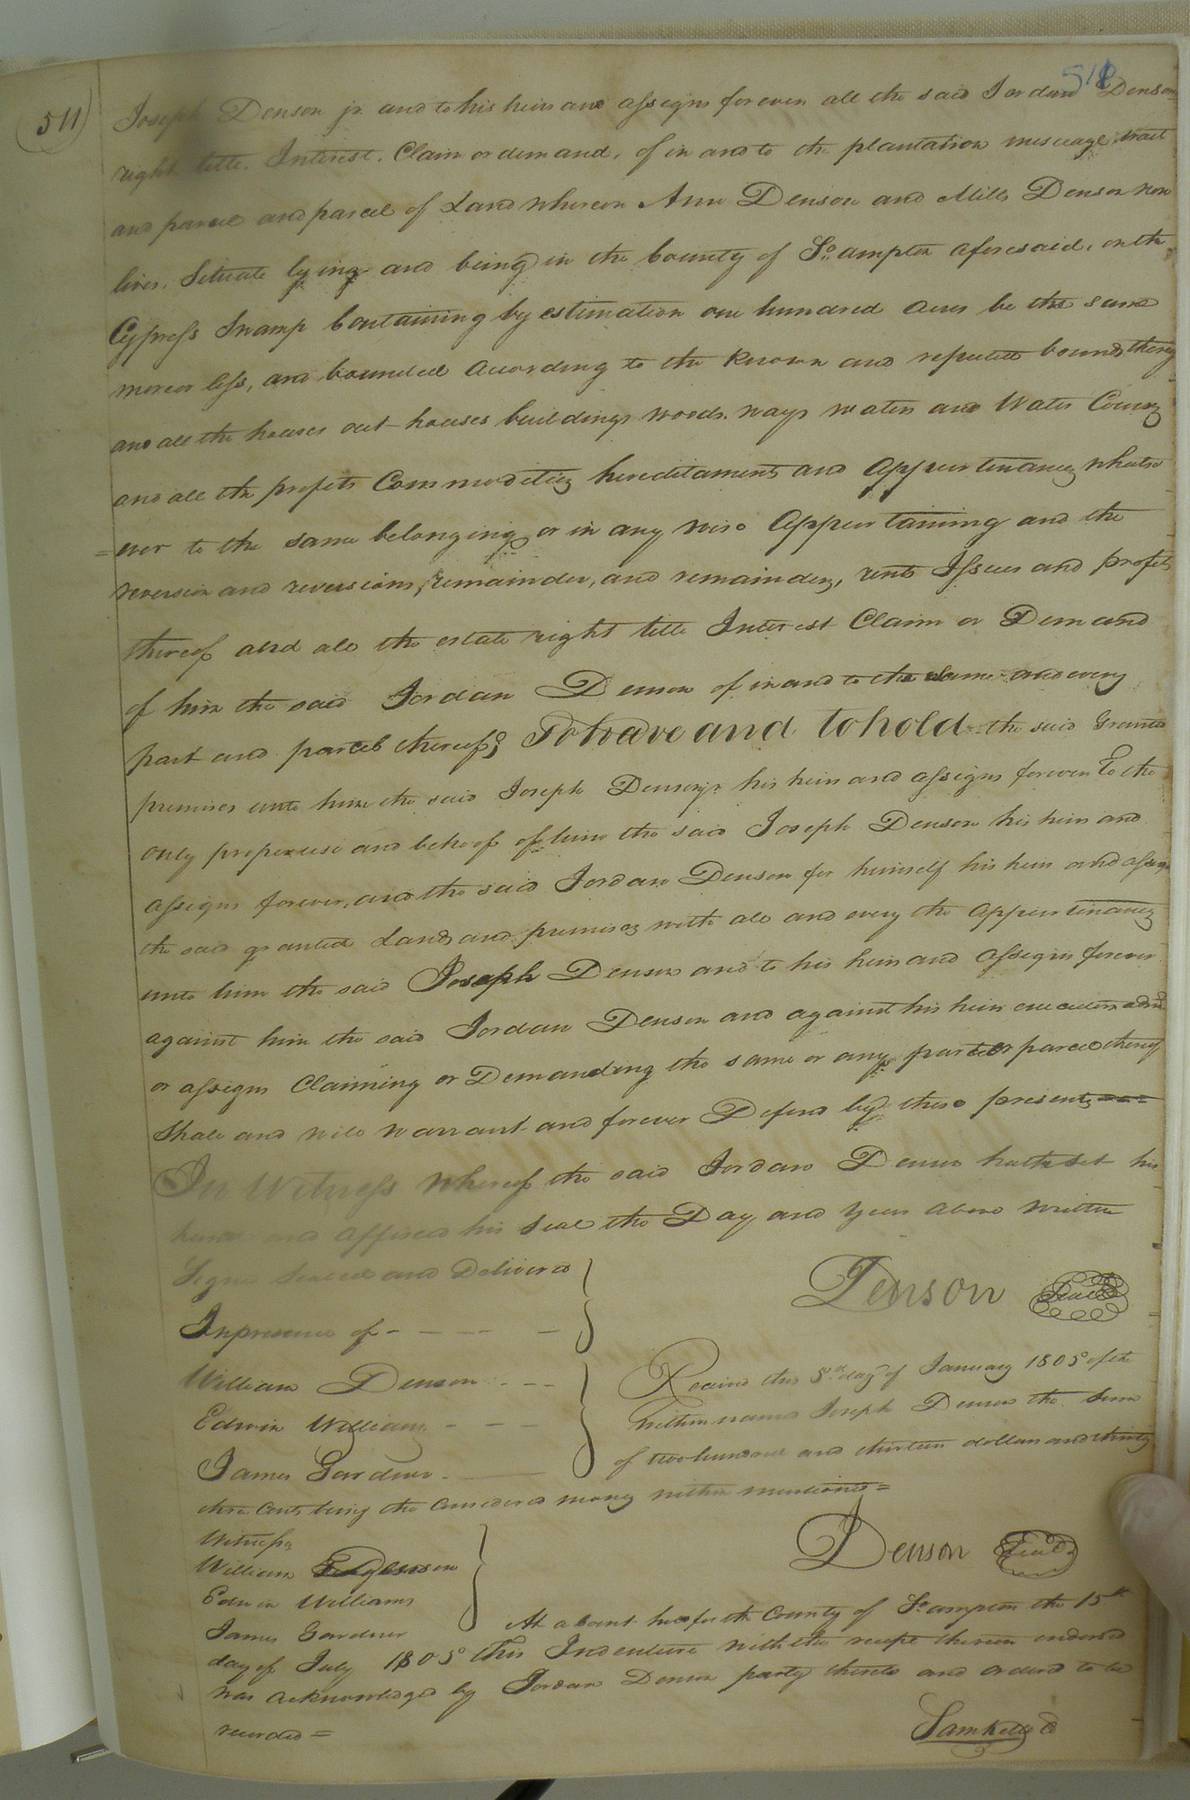 511
511
Joseph Denson jr. and to his heirs and assigns forever all the said Jordan Denson
right title. Interest. Claim or demand, of in and to the plantation messuage tract
and parcel and parcel of Land whereon Ann Denson and Mills Denson now
lives. Situate lying and being in the County of So. ampton aforesaid, on the
Cypress Swamp Containing by estimation one hundred acres be the same
more or less, and bounded according to the known and reputed bounds thereof
and all the houses out houses buildings woods. ways waters and Water Courses
and all the profits Commodities hereditaments and Appurtenances whatso
=ever to the same belonging or in any wise Appurtaining and the
reversion and reversions, remainder, and remainders, rents Issues and profits
thereof and all the estate right title Interest Claim or Demand
of him the said Jordan Denson of in and to the same and every
part and parcel thereof; To have and to hold the said Granted
premises unto him the said Joseph Denson jr. his heirs and assigns forever To the
only proper use and behoof of him the said Joseph Denson his heirs and
assigns forever, and the said Jordan Denson for himself his heirs and assigns
the said granted Land and premises with all and every the appurtenances
unto him the said Joseph Denson and to his heirs and assigns forever
against him the said Jordan Denson and against his heirs executors admrs
or assigns Claiming or Demanding the same or any part or parcel thereof
Shall and will warrant and forever Defend by these presents
In Witness Whereof the said Jordan Denson hath set his
hand and affixed his Seal the Day and Year above written
Signed Sealed and Delivered
In presence of - - - - -
Denson Seal
William Denson - - -
Edwin Williams - - -
James Gardner - ——
Received this 8th day of January 1805 of the
within named Joseph Denson the Sum
of two hundred and thirteen dollars and thirty
three cents being the Considered money within mentioned =
Witness
William Denson
Edwin Williams
James Gardner
Denson Seal
At a Court held for the County of So. ampton the 15th
day of July 1805 This Indenture with the receipt thereon endorsed
was acknowledged by Jordan Denson party thereto and ordered to be
recorded =
Sam Kello C